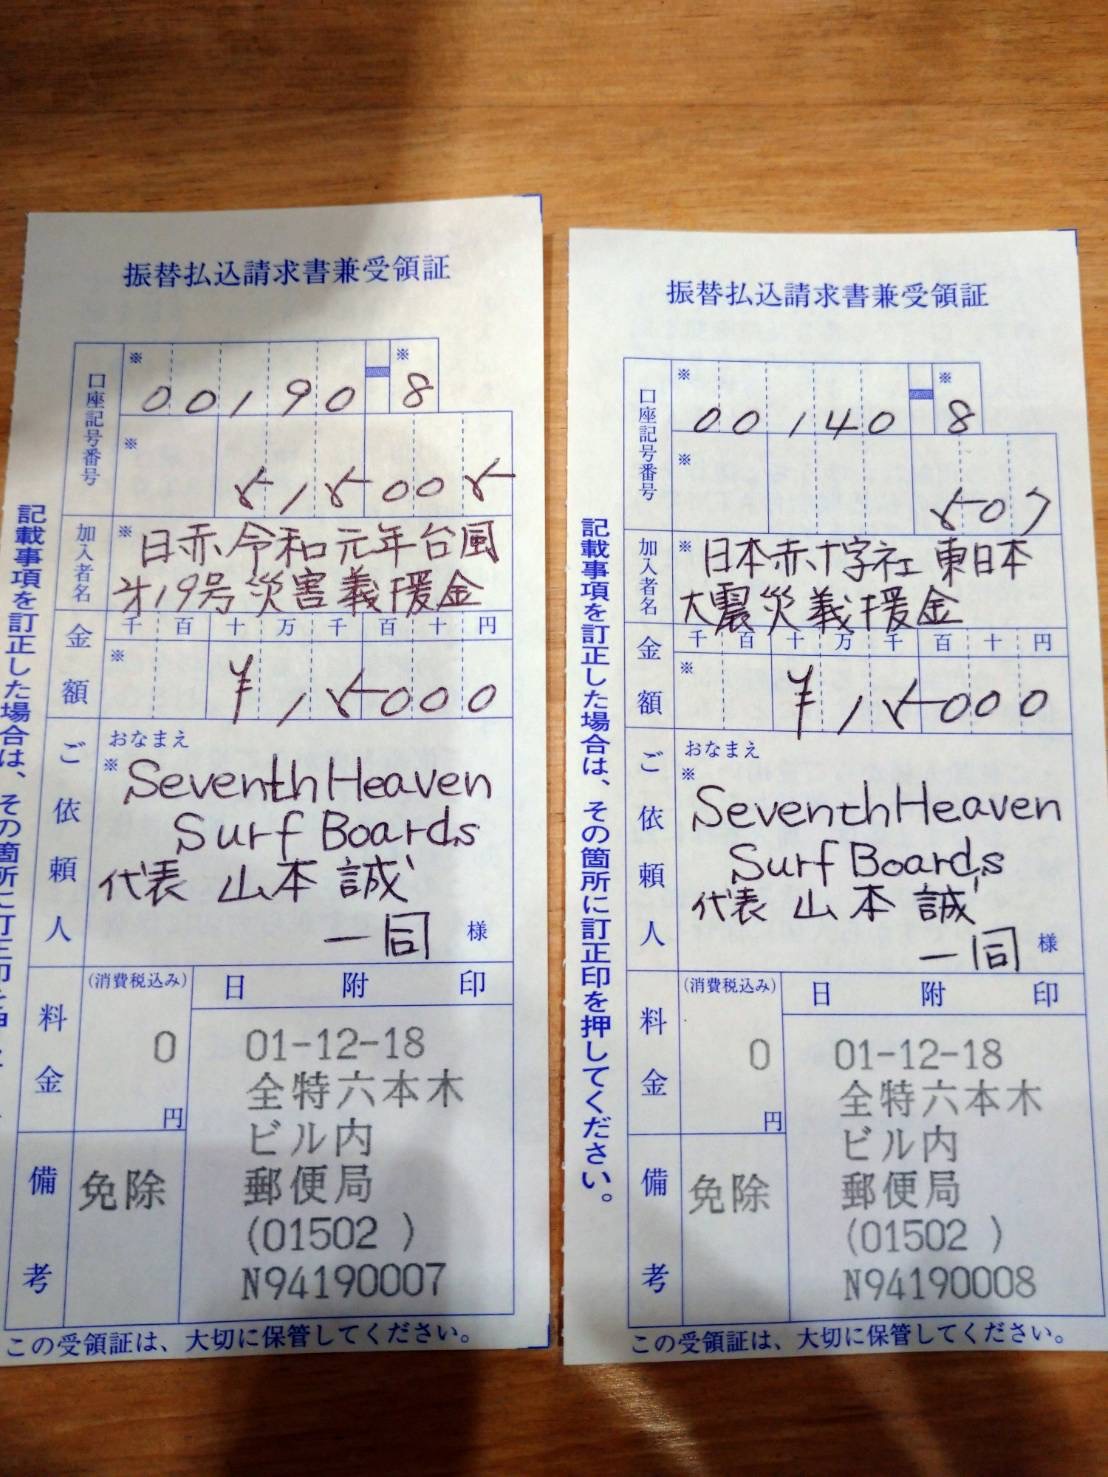 振替払込請求書兼受領証
口座記号番号
※ 00190 - ※ 8
※ 515005
加入者名
※ 日赤令和元年台風
第19号災害義援金
金額
千 百 十 万 千 百 十 円
※ ¥15000
ご依頼人
おなまえ
※ Seventh Heaven
Surf Boards
代表 山本 誠
一同 様
料金
(消費税込み)
0
円
日附印
01-12-18
全特六本木
ビル内
郵便局
(01502 )
N94190007
備考
免除
記載事項を訂正した場合は、その箇所に訂正印を押
この受領証は、大切に保管してください。
振替払込請求書兼受領証
口座記号番号
※ 00140 - ※ 8
※ 507
加入者名
※ 日本赤十字社 東日本
大震災義援金
金額
千 百 十 万 千 百 十 円
※ ¥15000
ご依頼人
おなまえ
※ Seventh Heaven
Surf Boards
代表 山本 誠
一同 様
料金
(消費税込み)
0
円
日附印
01-12-18
全特六本木
ビル内
郵便局
(01502 )
N94190008
備考
免除
記載事項を訂正した場合は、その箇所に訂正印を押してください。
この受領証は、大切に保管してください。